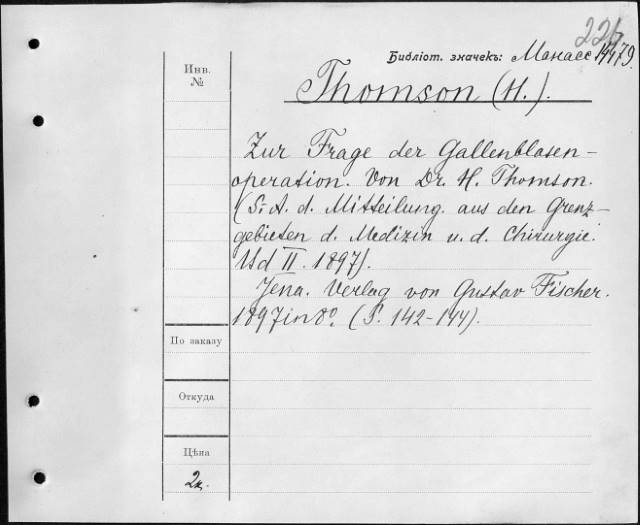 226
Библіот. значекъ: Манасс 14479.
Инв.
№
Thomson (H.).
Zur Frage der Gallenblasen-
operation. Von Dr. H. Thomson.
(S. A. d. Mitteilung. aus den Grenz-
gebieten d. Medizin u. d. Chirurgie.
Bd II. 1897).
Jena. Verlag von Gustav Fischer.
1897 in 8°. (S. 142-144).
По заказу
Откуда
Цѣна
2к.